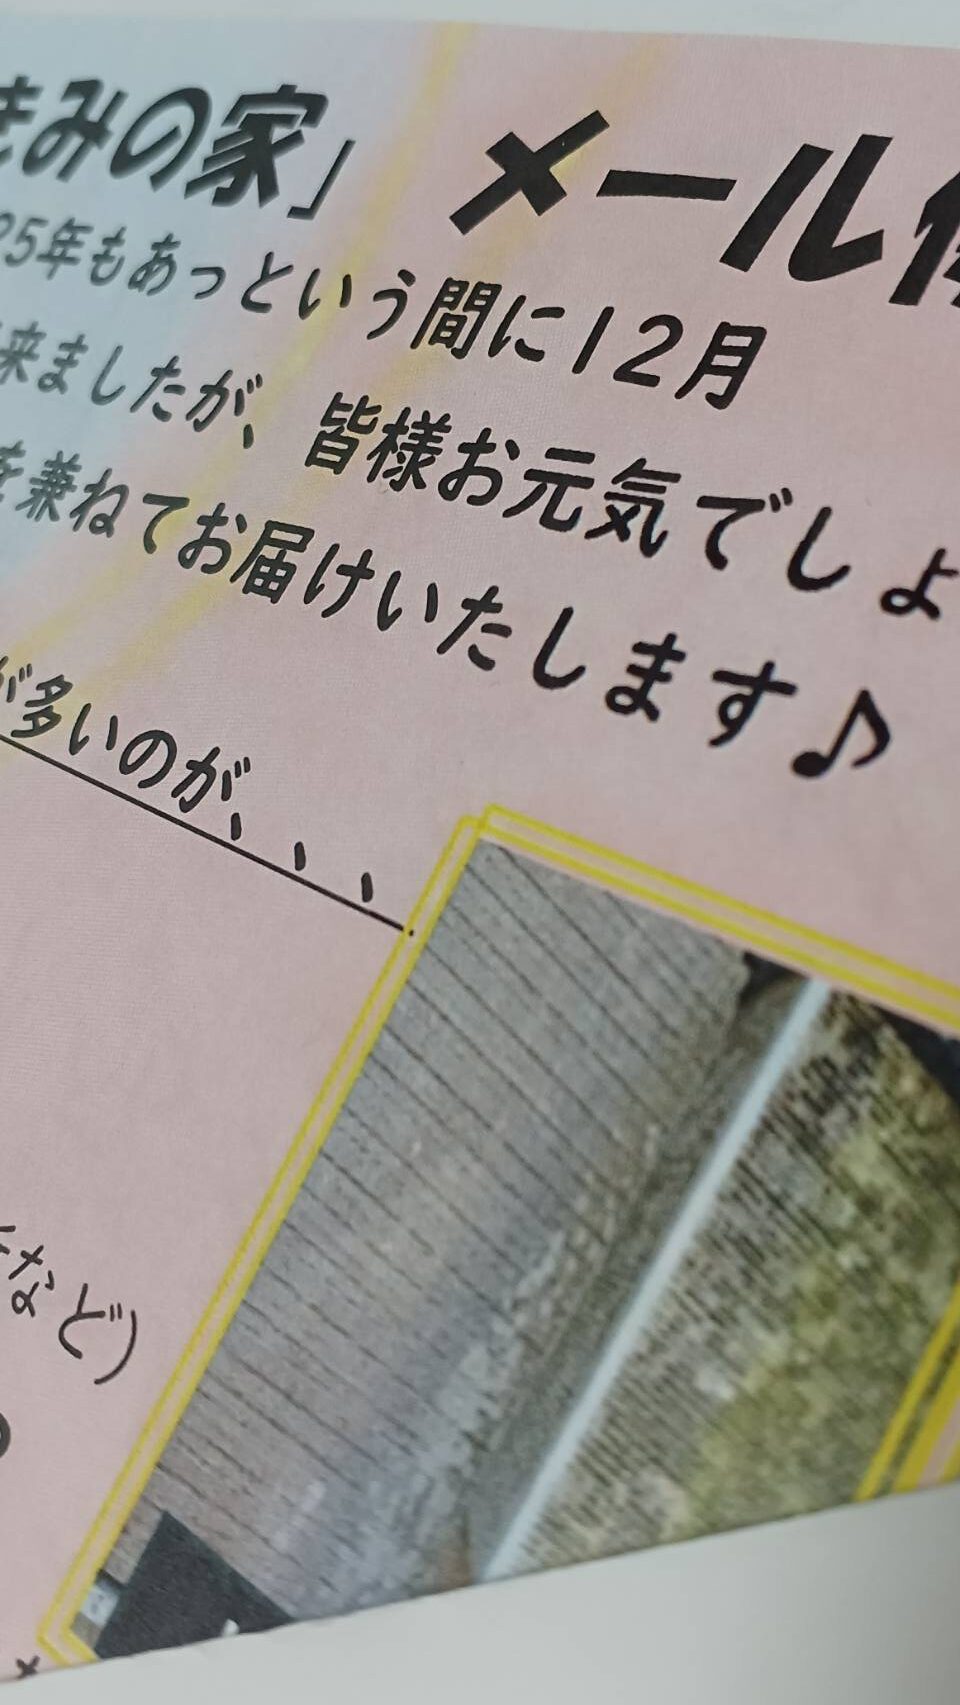 きみの家」 メール便
25年もあっという間に12月
来ましたが、皆様お元気でしょ
を兼ねてお届けいたします♪
が多いのが、、、
など)